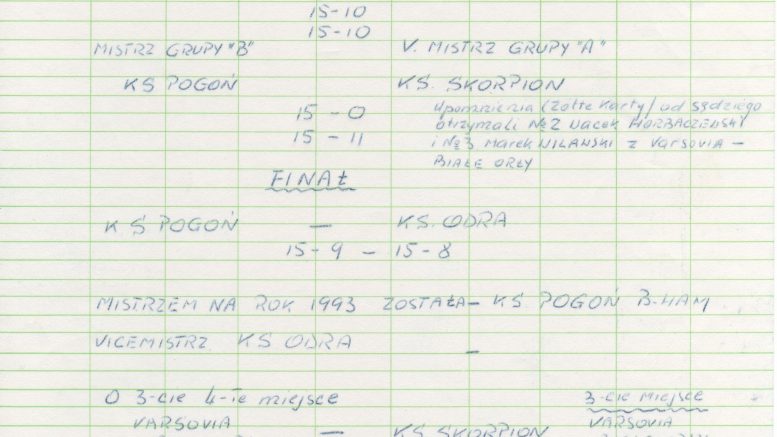 15-10
15-10
MISTRZ GRUPY "B" V. MISTRZ GRUPY "A"
KS POGOŃ KS. SKORPION
15 - 0 Upomnienia (Żółte Karty) od sędziego
15 - 11 otrzymali № 2 Jacek HORBACZEWSKI
i № 3 Marek WILANSKI z Varsovia -
BIAŁE ORŁY
FINAŁ
KS POGOŃ — KS. ODRA
15 - 9 — 15 - 8
MISTRZEM NA ROK 1993 ZOSTAŁA - KS POGOŃ B-HAM
VICEMISTRZ KS ODRA -
O 3-cie 4-Te miejsce 3-cie MIEJSCE
VARSOVIA — KS SKORPION VARSOVIA